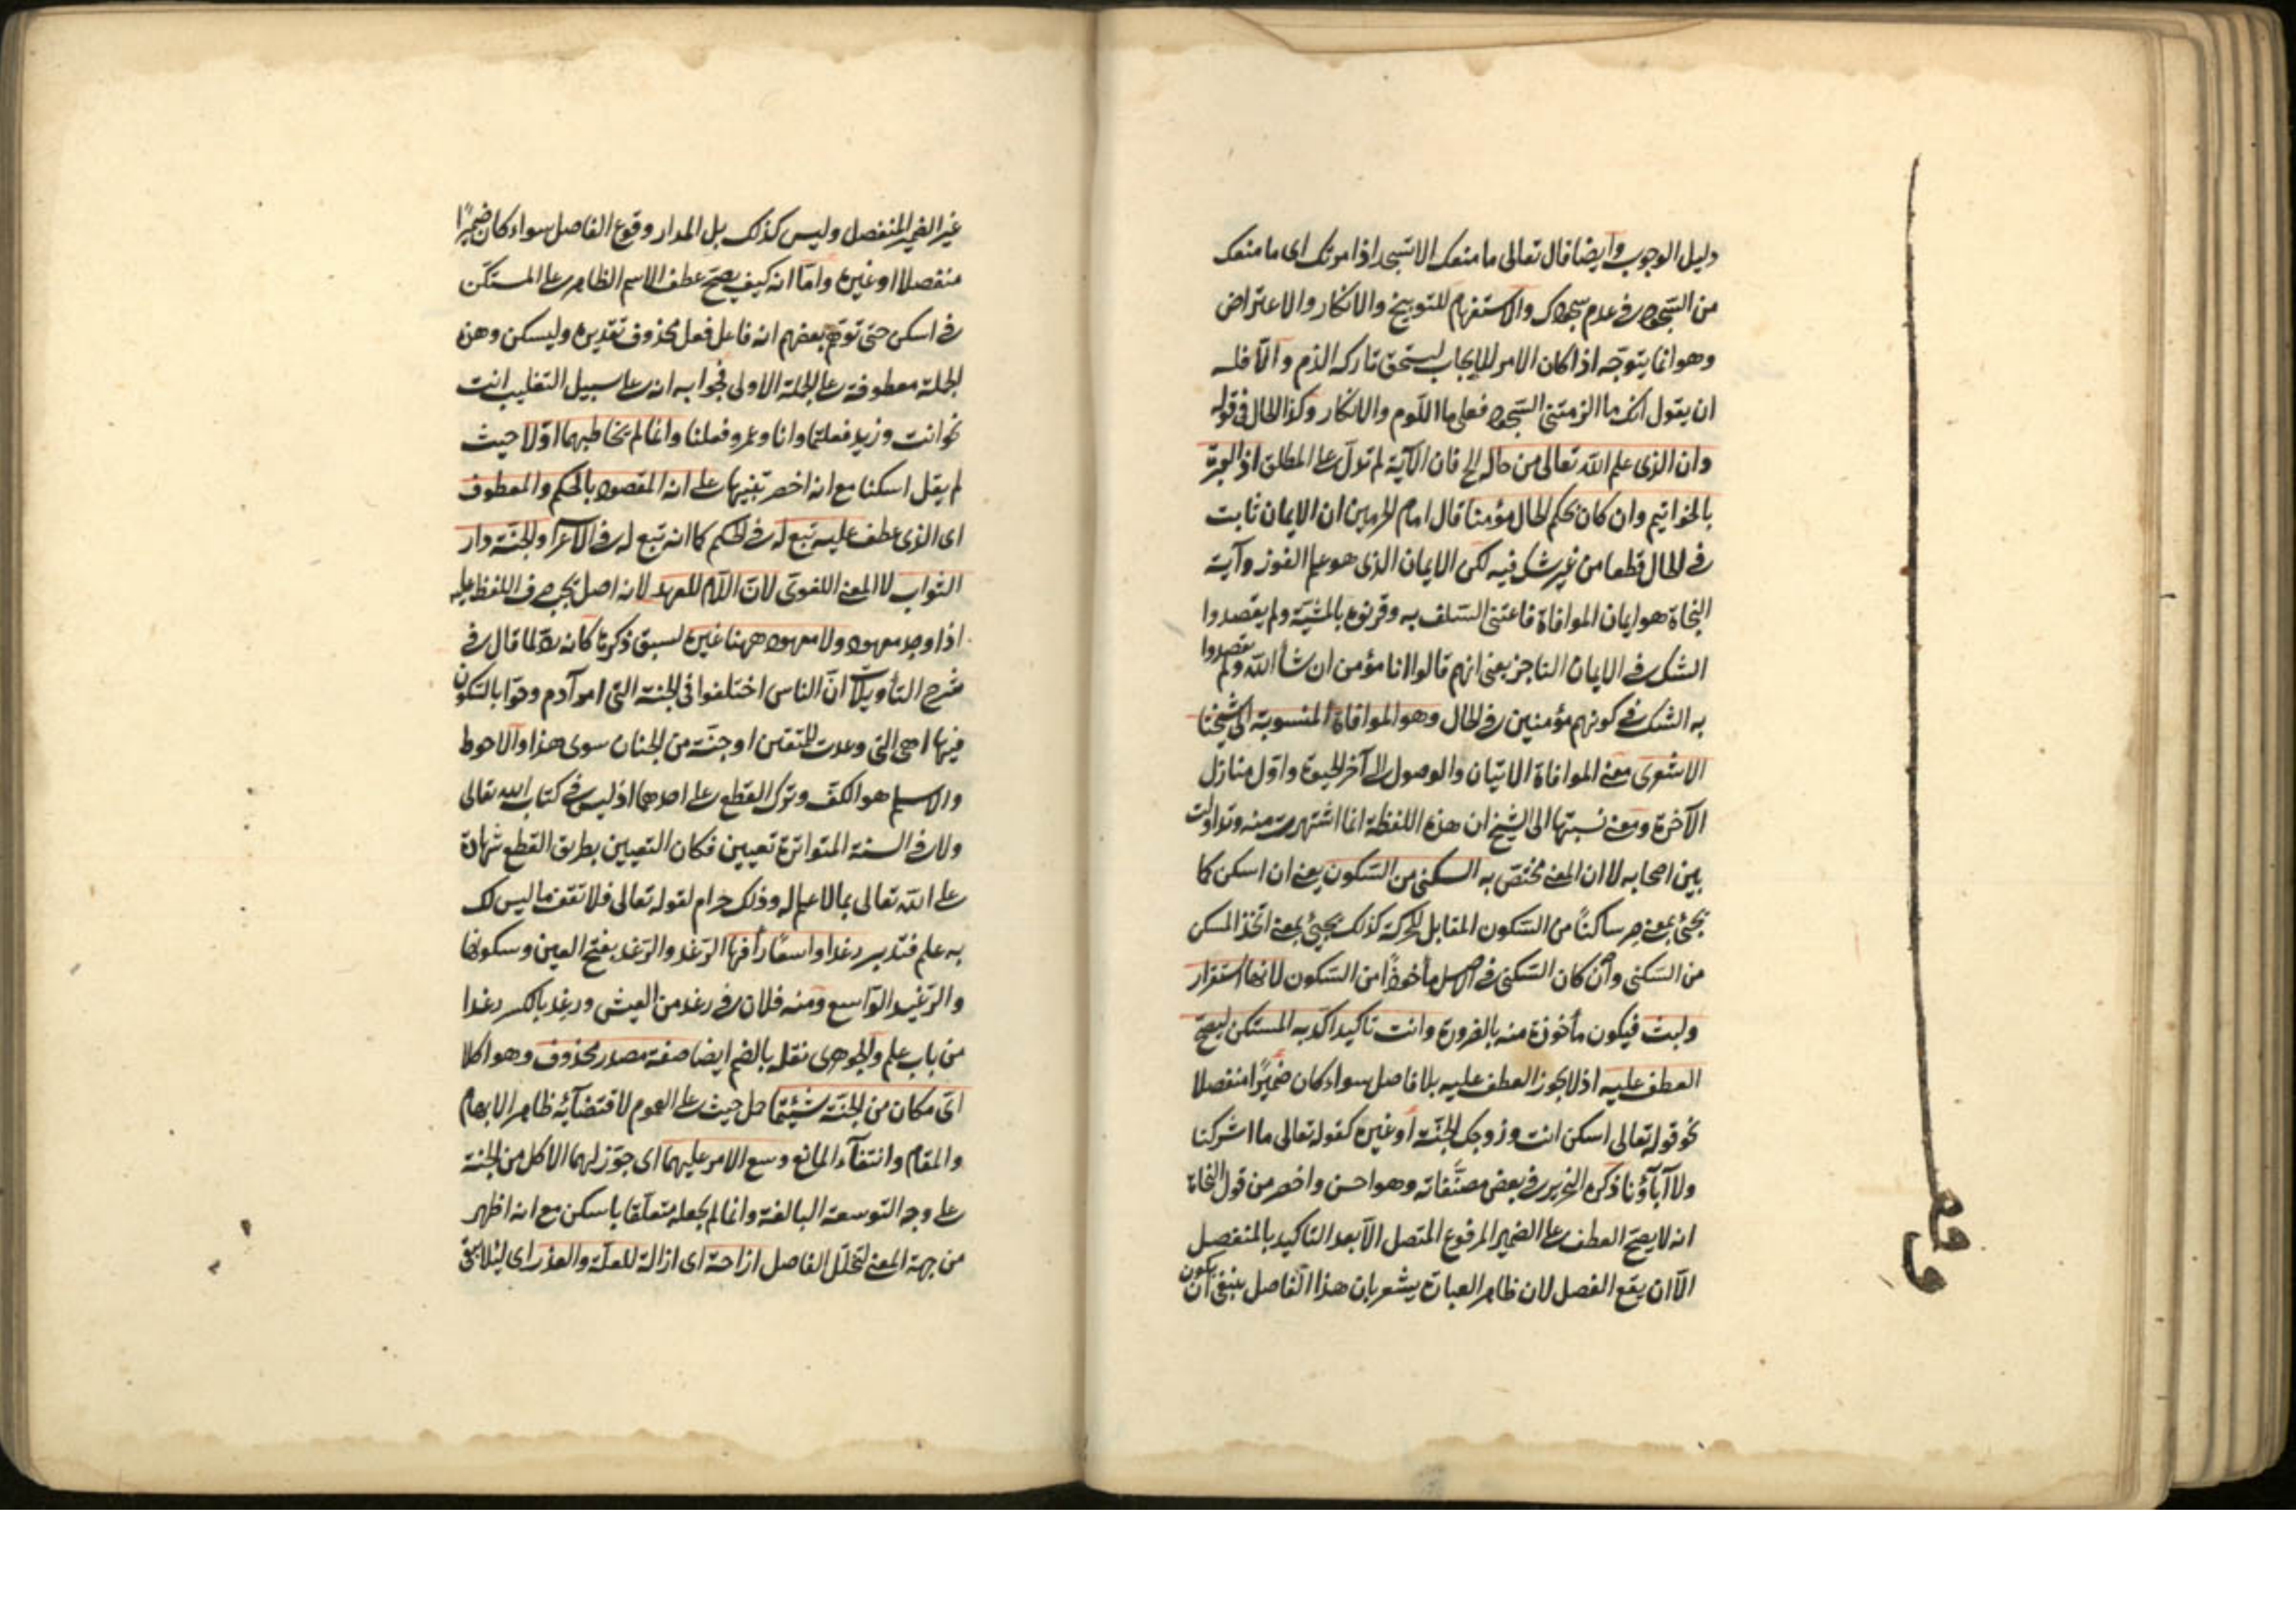 دليل الوجوب وأيضا قال تعالى ما منعك الا تسجد اذ امرتك اى ما منعك
من السجود فى عدم سجودك والاستفهام للتوبيخ والانكار والاعتراض
وهو انما يتوجه اذا كان الامر للايجاب ليستحق تاركه الذم والا فله
ان يقول انك ما الزمتنى السجود فعلى ما اللوم والانكار وكذا الحال فى قوله
وان الذى علم الله تعالى من حاله الخ فان الآية لم تدل على المطلق اذ العبرة
بالخواتيم وان كان بحكم الحال مؤمنا قال امام الحرمين ان الايمان ثابت
فى الحال قطعا من غير شك فيه لكن الايمان الذى هو علم الفوز وآية
النجاة هو ايمان الموافاة فاعتنى السلف به وقرنوه بالمشية ولم يقصدوا
الشك فى الايمان الناجز يعنى انهم قالوا انا مؤمن ان شأ الله ولم يقصدوا
به الشك فى كونهم مؤمنين فى الحال وهو الموافاة المنسوبة الى شيخنا
الاشعرى معنى الموافاة الاتيان والوصول الى آخر الحيوة واول منازل
الآخرة ومعنى نسبتها الى الشيخ ان هذه اللفظة انما اشتهرت منه وتداولت
بين اصحابه لا ان المعنى مختص به السكنى من السكون يعنى ان اسكن كما
يجئ بمعنى صر ساكنا من السكون المقابل للحركة كذلك يجيئ بمعنى اتخذ المسكن
من السكنى وان كان السكنى فى الاصل مأخوذا من السكون لانها استقرار
ولبث فيكون مأخوذة منه بالضرورة وانت تاكيد اكد به المستكن ليصح
العطف عليه اذ لا يجوز العطف عليه بلا فاصل سواء كان ضميرا منفصلا
نحو قوله تعالى اسكن انت وزوجك الجنة او غيره كقوله تعالى ما اشركنا
ولا آباؤنا ذكره النحرير فى بعض مصنفاته وهو احسن واخصر من قول النحاة
انه لا يصح العطف على الضمير المرفوع المتصل الا بعد التاكيد بالمنفصل
الا ان يقع الفصل لان ظاهر العبارة يشعر بان هذا الفاصل ينبغى ان يكون
وقف
غير الضمير المنفصل وليس كذلك بل المدار وقوع الفاصل سواء كان ضميرا
منفصلا او غيره واما انه كيف يصح عطف الاسم الظاهر على المستكن
فى اسكن حتى توهم بعضهم انه فاعل فعل محذوف تقديره وليسكن وهذه
الجملة معطوفة على الجملة الاولى فجوابه انه على سبيل التغليب انت
نحو انت وزيد فعلتما وانا وعمرو فعلنا وانما لم يخاطبهما اولا حيث
لم يقل اسكنا مع انه اخصر تنبيها على انه المقصود بالحكم والمعطوف
اى الذى عطف عليه تبع له فى الحكم كما انه تبع له فى الاعراب والجنة دار
الثواب لا المعنى اللغوى لان اللام للعهد لانه اصل يجب صرف اللفظ عليه
اذا وجد معهود ولا معهود ههنا غيره لسبق ذكرها كانه رد لما قال فى
شرح التأويلات ان الناس اختلفوا فى الجنة التى امر آدم وحوا بالسكون
فيها اهى التى وعدت للمتقين او جنة من الجنان سوى هذا والاحوط
والاسلم هو الكف وترك القطع على احدهما اذ ليس فى كتاب الله تعالى
ولا فى السنة المتواترة تعيين فكان التعيين بطريق القطع شهادة
على الله تعالى بما لا علم له وذلك حرام لقوله تعالى فلا تقف ما ليس لك
به علم فتدبر رغدا واسعا رافها الرغد والرغد بفتح العين وسكونها
والرغيد الواسع ومنه فلان فى رغد من العيش ورغد بالكسر رغدا
من باب علم والجوهرى نقله بالضم ايضا صفة مصدر محذوف وهو اكلا
اى مكان من الجنة شئتما حمل حيث على العموم لاقتضائه ظاهر الابهام
والمقام وانتفاء المانع وسع الامر عليهما اى جوز لهما الاكل من الجنة
على وجه التوسعة البالغة وانما لم يجعله متعلقا باسكن مع انه اظهر
من جهة المعنى لتخلل الفاصل ازاحة اى ازالة للعلة والعذر اى لئلا يبقى